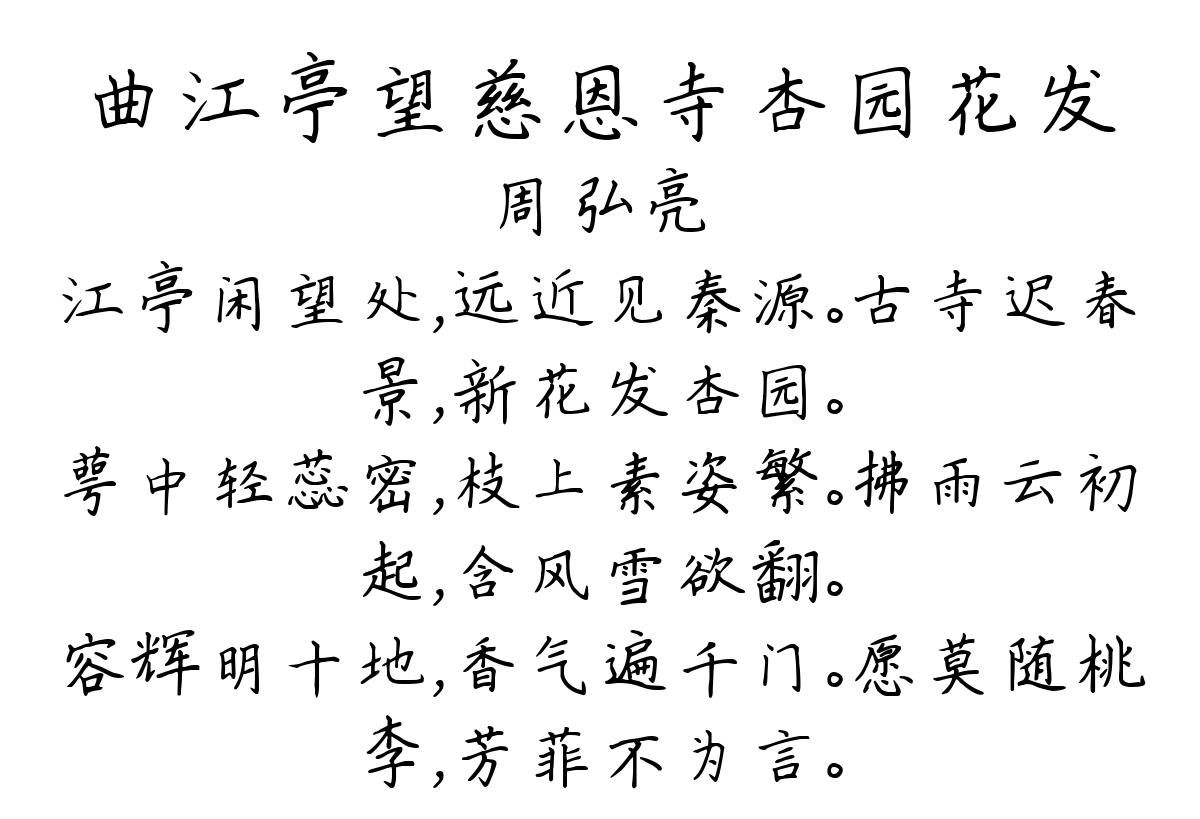 曲江亭望慈恩寺杏园花发
周弘亮
江亭闲望处,远近见秦源。古寺迟春
景,新花发杏园。
萼中轻蕊密,枝上素姿繁。拂雨云初
起,含风雪欲翻。
容辉明十地,香气遍千门。愿莫随桃
李,芳菲不为言。